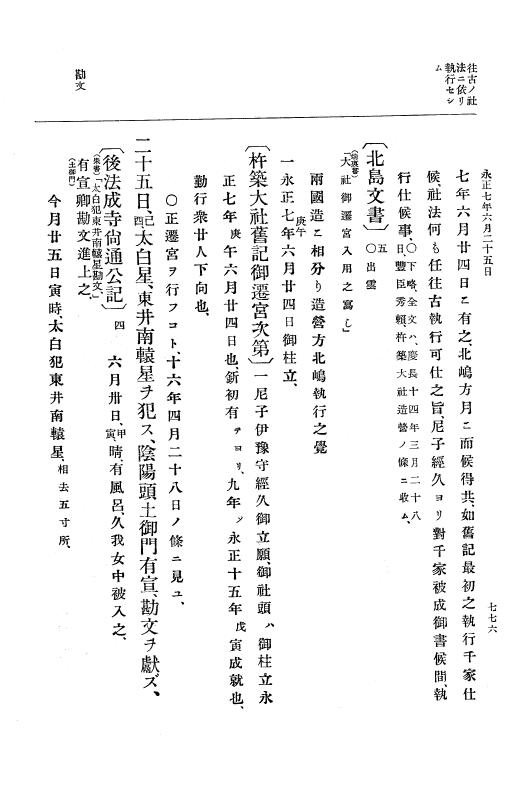 永正七年六月二十五日
七七六
往古ノ社
法ニ依リ
執行セシ
ム
勘文
七年六月廿四日ニ有之、北嶋方月ニ而候得共、如舊記最初之執行千家仕
候、社法何も任往古執行可仕之旨、尼子經久ヨリ對千家被成御書候間、執
行仕候事、○下略、全文ハ、慶長十四年三月二十八
日、豐臣秀賴、杵築大社造營ノ條ニ收ム、
〔北島文書〕五○出雲
(端裏書)
「大社御遷宮入用之寫し」
兩國造ニ相分り造營方北嶋執行之覺
一永正七年庚午六月廿四日御柱立、
〔杵築大社舊記御遷宮次第〕一尼子伊豫守經久御立願、御社頭ハ御柱立永
正七年庚午六月廿四日也、釿初有テヨリ、九年ノ永正十五年戊寅成就也、
勤行衆廿人下向也、
○正遷宮ヲ行フコト、十六年四月二十八日ノ條ニ見ユ、
二十五日、己酉太白星、東井南轅星ヲ犯ス、陰陽頭土御門有宣、勘文ヲ獻ズ、
〔後法成寺尙通公記〕四 六月卅日、甲寅晴、有風呂、久我女中被入之、
(朱書)「太白犯東井南轅星勘文」
(土御門)有宣卿勘文進上之、
今月廿五日寅時、太白犯東井南轅星、相去五寸所、